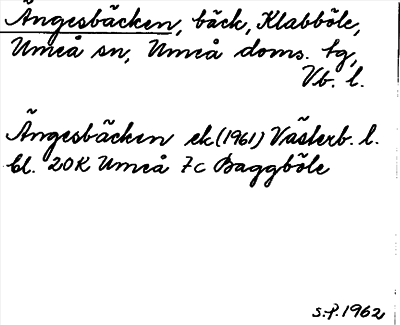 Ängesbäcken, bäck, Klabböle,
Umeå sn, Umeå doms. tg,
Vb. l.
Ängesbäcken ek (1961) Västerb. l.
bl. 20K Umeå 7c Baggböle
S.P. 1962